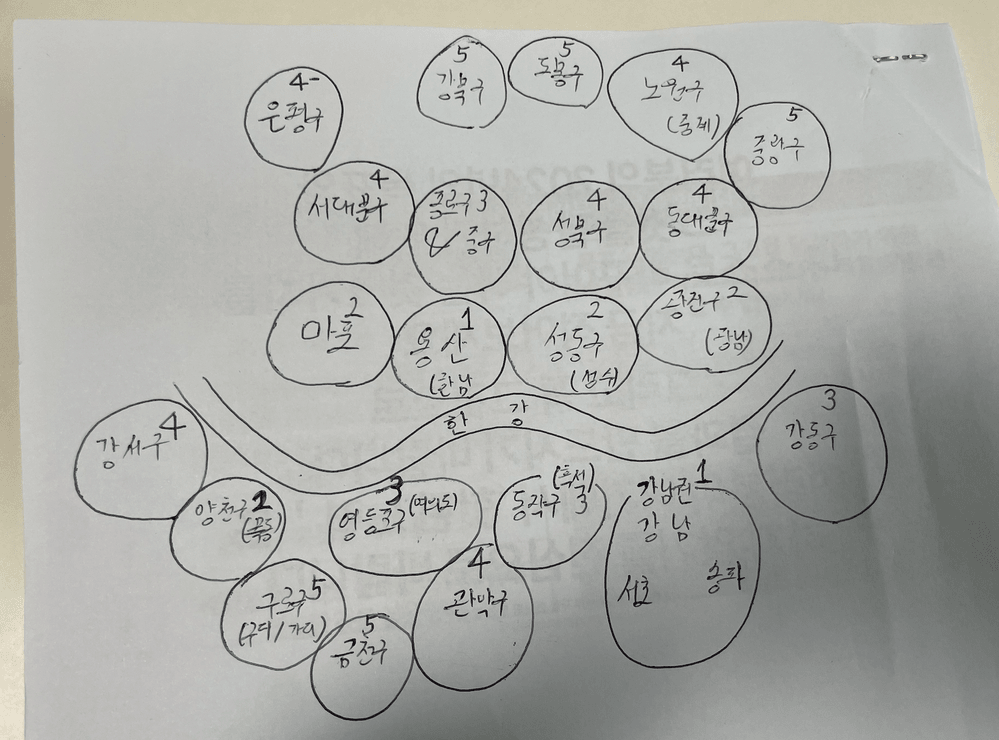 4
은평구
5
강북구
5
도봉구
4
노원구
(중계)
5
중랑구
4
서대문구
종로구 3
& 중구
4
성북구
4
동대문구
2
마포
1
용산
(한남)
2
성동구
(성수)
광진구 2
(광남)
한 강
강서구 4
3
강동구
양천구 2
(목동)
3
영등포구 (여의도)
(흑석)
동작구 3
강남권 1
강 남
서초 송파
구로구 5
(구디/가디)
5
금천구
4
관악구